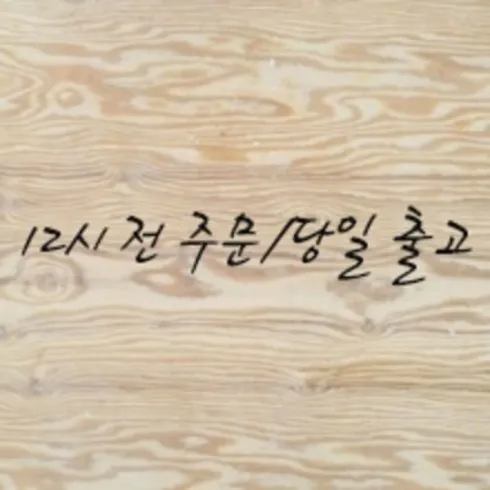 12시 전 주문/당일 출고